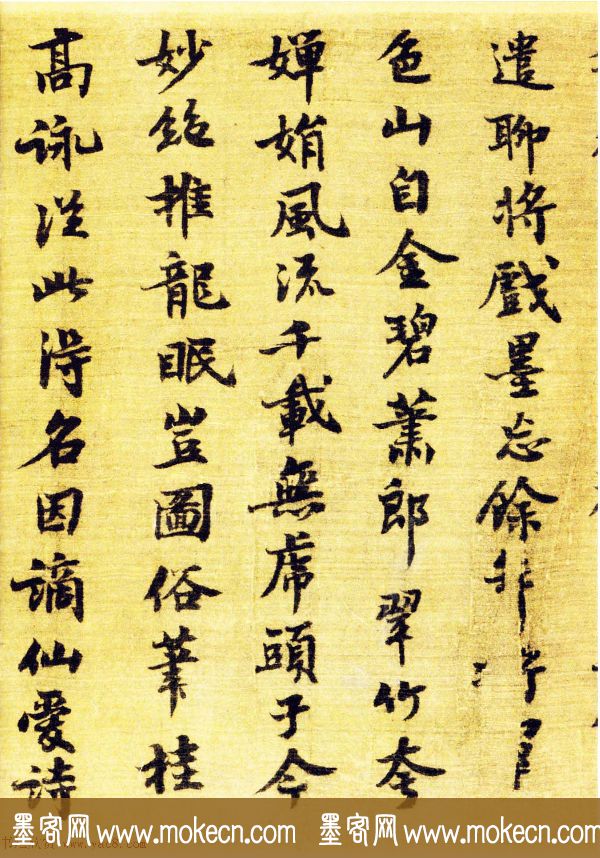 遣聊將戲墨忘餘非
色山自金碧蕭郎翠竹夸
嬋娟風流千載無虎頭于今
妙絶推龍眠豈圖俗筆挂
高詠從此得名因謫仙愛詩
墨客网 www.mokecn.com 墨客网 www.mokecn.com